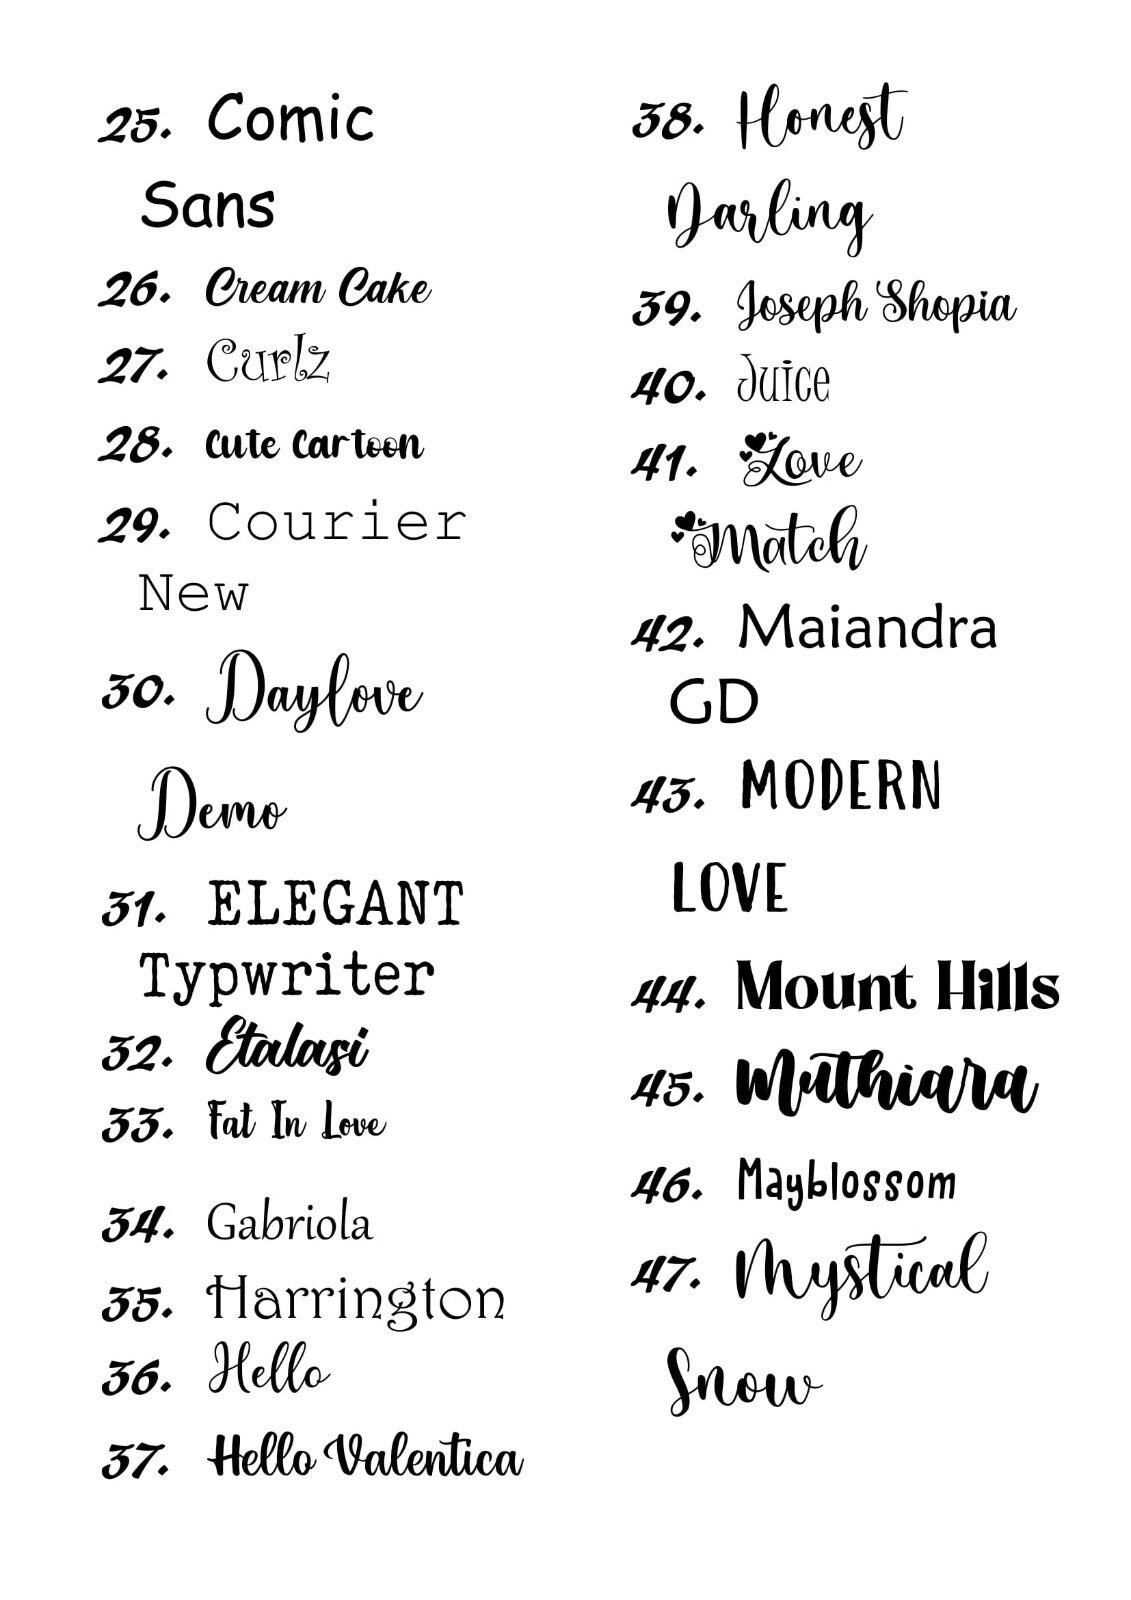 25. Comic
Sans
26. Cream Cake
27. Curlz
28. Cute Cartoon
29. Courier
New
30. Daylove
Demo
31. ELEGANT
Typwriter
32. Etalasi
33. Fat In Love
34. Gabriola
35. Harrington
36. Hello
37. Hello Valentica
38. Honest
Darling
39. Joseph Shopia
40. Juice
41. Love
Match
42. Maiandra
GD
43. MODERN
LOVE
44. Mount Hills
45. Muthiara
46. Mayblossom
47. Mystical
Snow